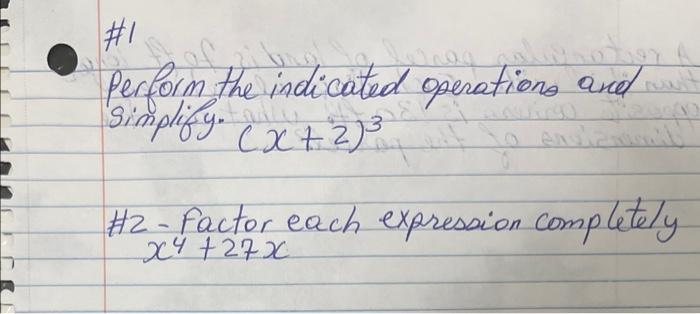 #1
Perform the indicated operations and
Simplify. (x+2)³
#2 - Factor each expression completely
x⁴ + 27x